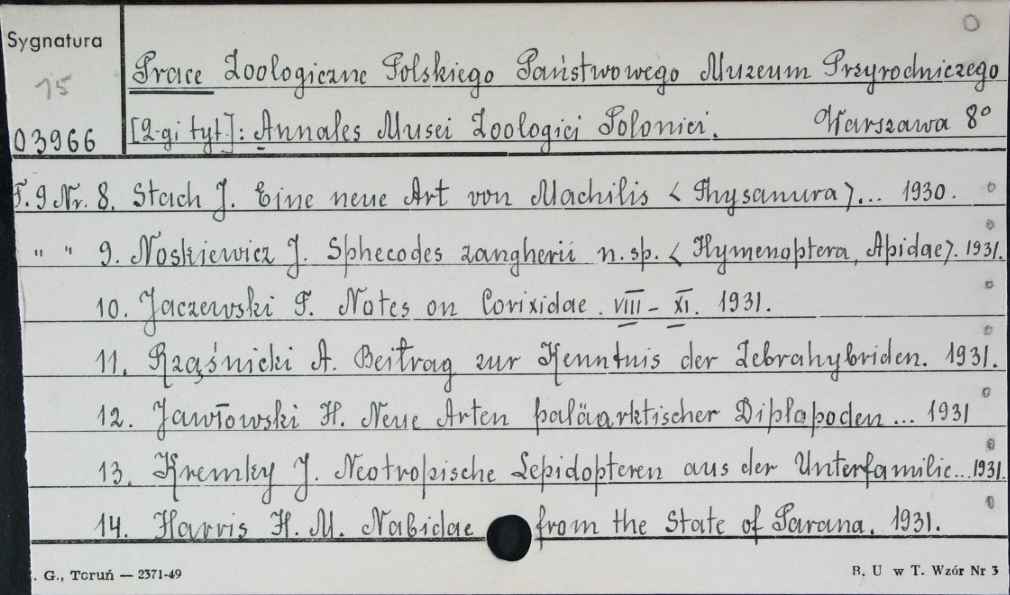 Sygnatura
15
03966
Prace Zoologiczne Polskiego Państwowego Muzeum Przyrodniczego
[2-gi tyt.]: Annales Musei Zoologici Polonici. Warszawa 8°
T. 9 Nr. 8. Stach J. Eine neue Art von Machilis < Thysanura >... 1930.
" " 9. Noskiewicz J. Sphecodes zangherii n. sp. < Hymenoptera, Apidae >. 1931.
10. Jaczewski T. Notes on Corixidae. VIII - XI. 1931.
11. Rząśnicki A. Beitrag zur Kenntnis der Zebrahybriden. 1931.
12. Jawłowski H. Neue Arten paläarktischer Diplapoden ... 1931
13. Kremky J. Neotropische Lepidopteren aus der Unterfamilie... 1931.
14. Harris H. M. Nabidae from the State of Parana. 1931.
. G., Toruń — 2371-49
B. U w T. Wzór Nr 3